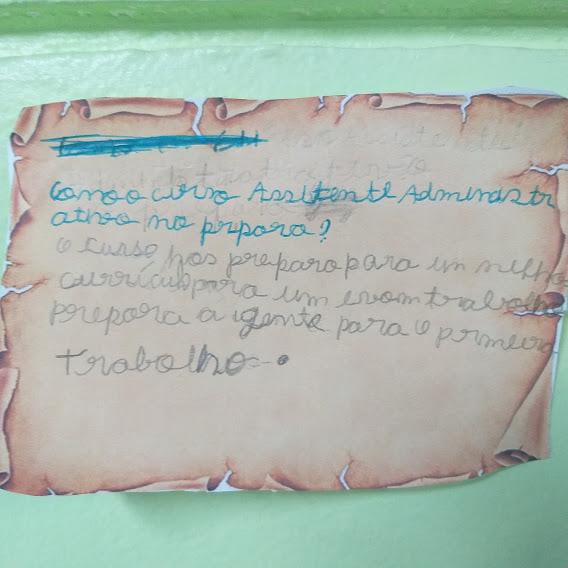 Como o curso Assitente Administr
ativo no prpara?
o curso nos prepara para um melho
currículo para um bom trabalho
prepara a gente para o prmeiro
trabalho.